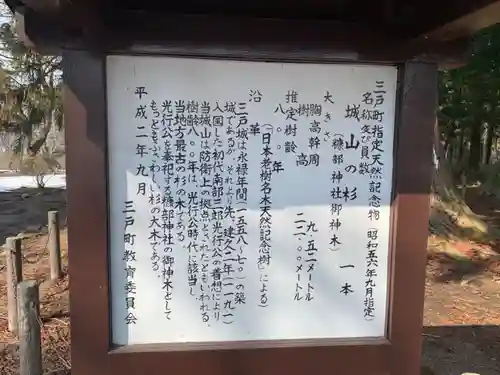 三戸町指定天然記念物 (昭和五六年九月指定)
名称及員数
城山の杉 一本
(糠部神社御神木)
大きさ
胸高幹周 九.五二メートル
樹高 二二.〇〇メートル
推定樹齢
八〇〇年
(日本老樹名木天然記念樹」による)
沿革
三戸城は永禄年間(一五五八~七〇)の築
城であるが、それより先、建久二年(一一九一)
入国した初代南部三郎光行公の着想により
当城山は防衛上の拠点とされたともいわれる。
樹齢八〇〇年は、光行公時代に該当し、
当地方最古の杉の木である。
光行公を奉祀する糠部神社の御神木として
もっともふさわしい杉の大木である。
平成二年九月
三戸町教育委員会